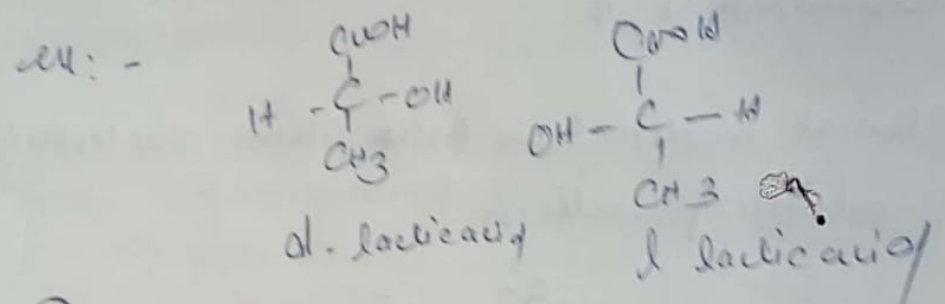 ex: -
COOH
H - C - OH
CH3
d. lactic acid
COOH
OH - C - H
CH3
l lactic acid